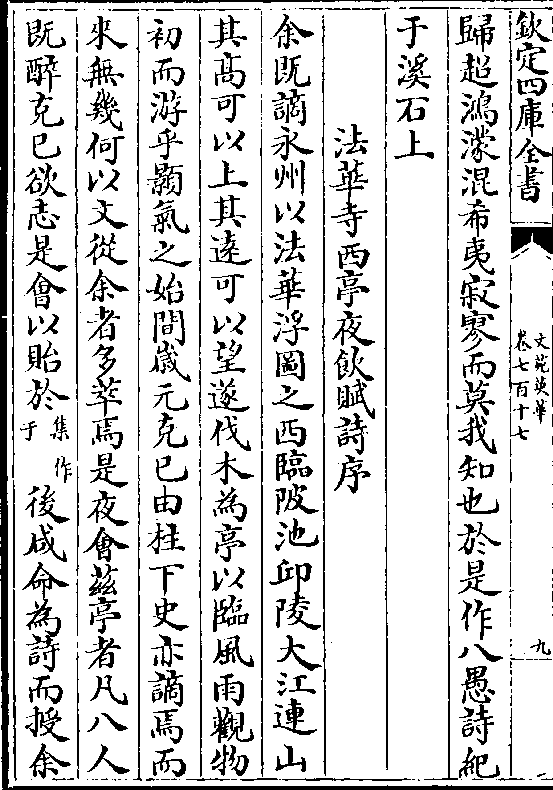 欽定四庫全書
文苑英華
卷七百十七
九
歸超鴻濛混希夷寂寥而莫我知也於是作八愚詩紀
于溪石上
法華寺西亭夜飲賦詩序
余既謫永州以法華浮圖之西臨陂池丘陵大江連山
其髙可以上其逺可以望遂伐木為亭以臨風雨觀物
初而游乎顥氣之始間嵗元克已由柱下史亦謫焉而
來無幾何以文從余者多萃焉是夜會兹亭者凡八人
既醉克已欲志是會以貽於集作于後咸命為詩而授余